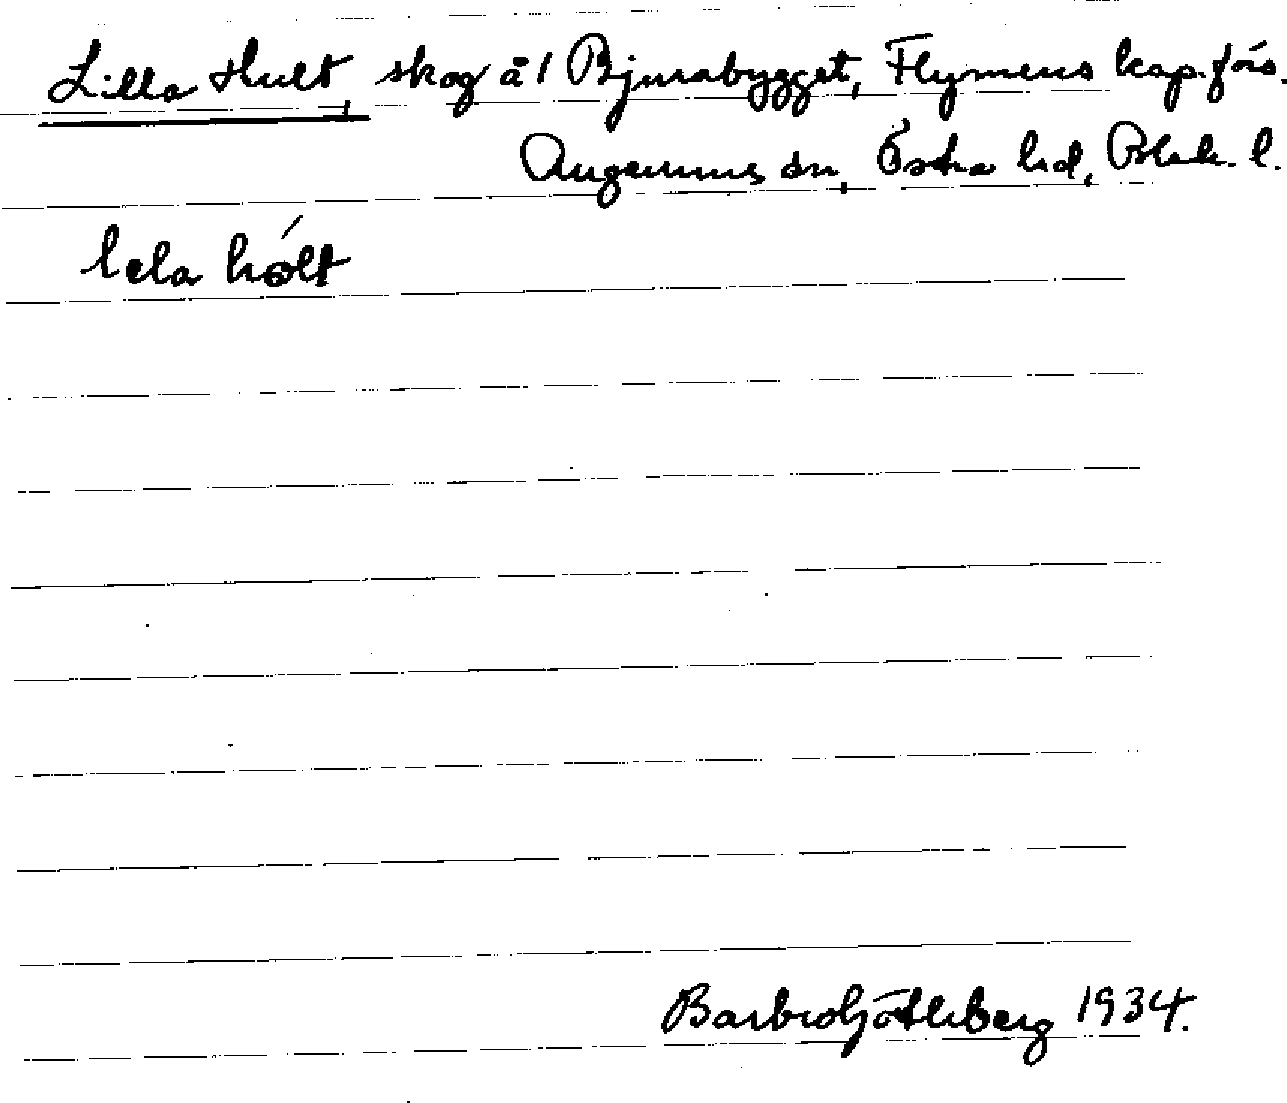 Lilla Hult, skog å 1 Bjurabygget, Flymens kap.förs.
Augerums sn, Östra hd, Blek. l.
lela hólt
Barbro Götleberg 1934.